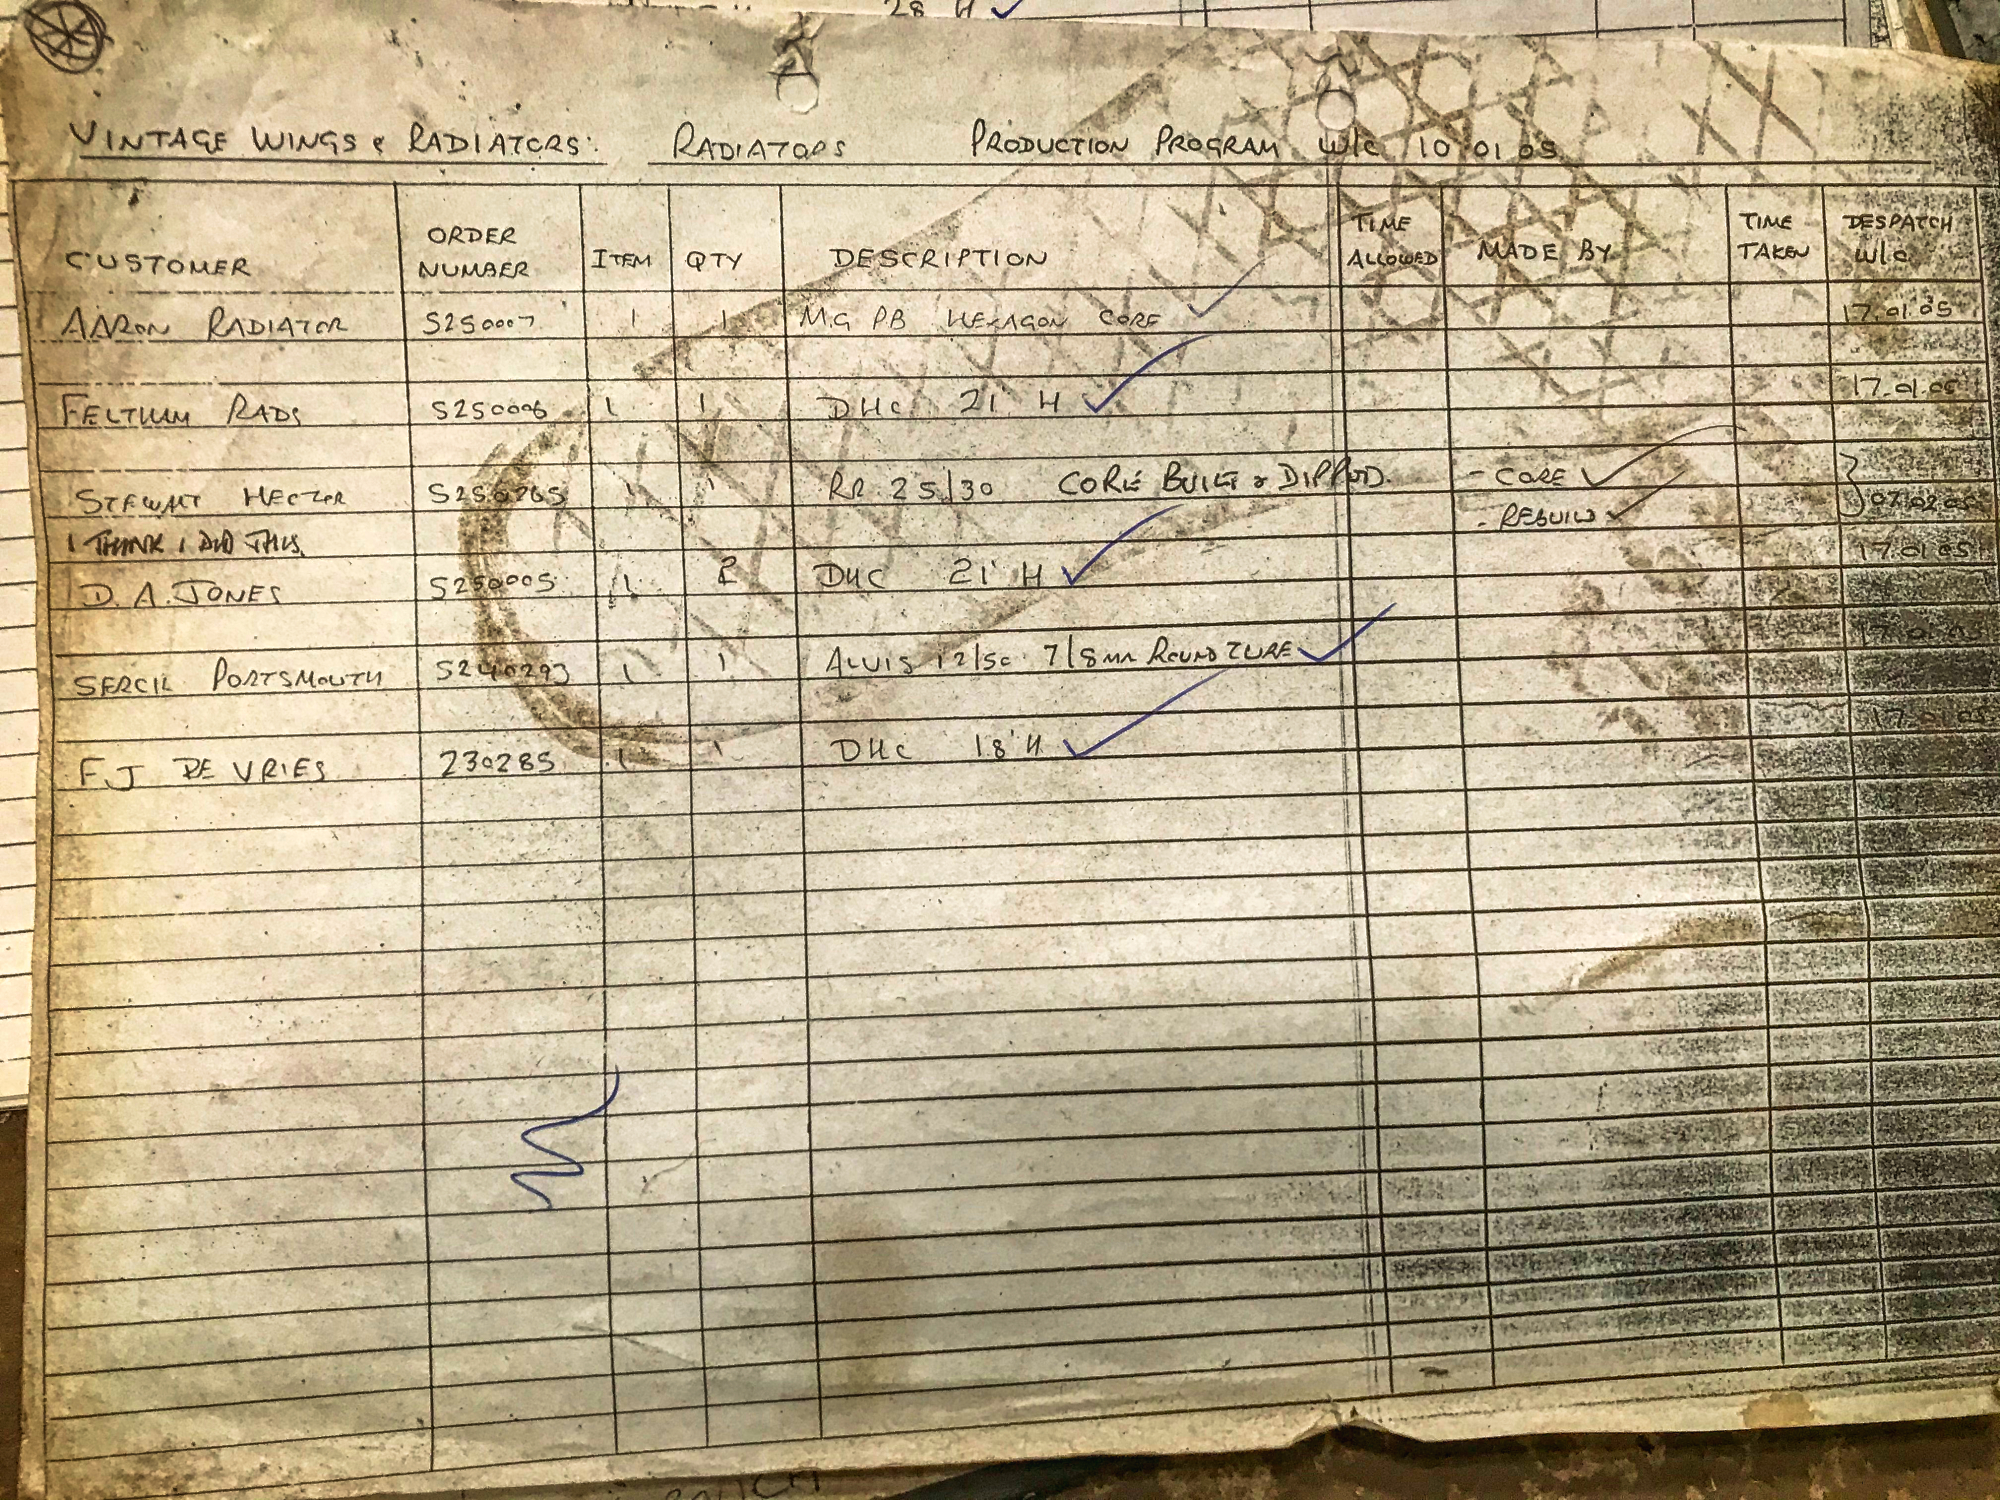 28 H
VINTAGE WINGS & RADIATORS. RADIATORS PRODUCTION PROGRAM W/C 10 01 05
CUSTOMER ORDER NUMBER ITEM QTY DESCRIPTION TIME ALLOWED MADE BY TIME TAKEN DESPATCH W/C
AARON RADIATOR S250007 1 1 MG PB HEXAGON CORE 17.01.05
FELTHAM RADS S250006 1 1 DHC 21 H 17.01.05
STEWART HECTOR 1 1 RR 25/30 CORE BUILT & DIPPED. - CORE 07.02.05
- REBUILD
I THINK I DID THIS
D. A. JONES S250005 1 2 DHC 21' H 17.01.05
SERCIL PORTSMOUTH S240293 1 1 ALVIS 12/50 7/8MM ROUND TUBE 17.01.05
F.J DE VRIES 230285 1 1 DHC 18'H 17.01.05